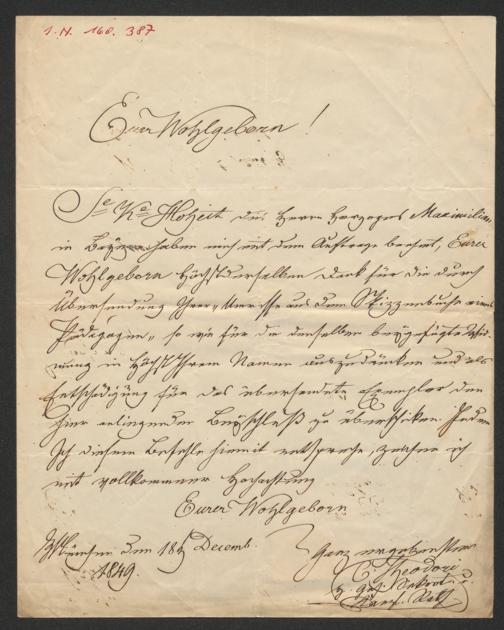 I. N. 160.387
Euer Wohlgeborn!
Se Kе Hoheit der Herr Herzog Maximilian
in Bayern haben mich mit dem Auftrage beehrt, Eurer
Wohlgeborn Höchstderselben Dank für die durch
Übersendung Ihrer „Umrisse aus dem Skizzenbuche eines
Pädagogen“ so wie für die denselben beygefügte Wid-
mung in Höchst Ihrem Namen auszudrücken und als
Entschädigung für das übersendete Exemplar den
hier anliegenden zu überschiken. Indem
Ich diesem Befehle hiemit entspreche, zeichne ich
mit vollkommener Hochachtung
Eurer Wohlgeborn
München den 18t Decemb.
1849.
ganz ergebenster
C. Theodori